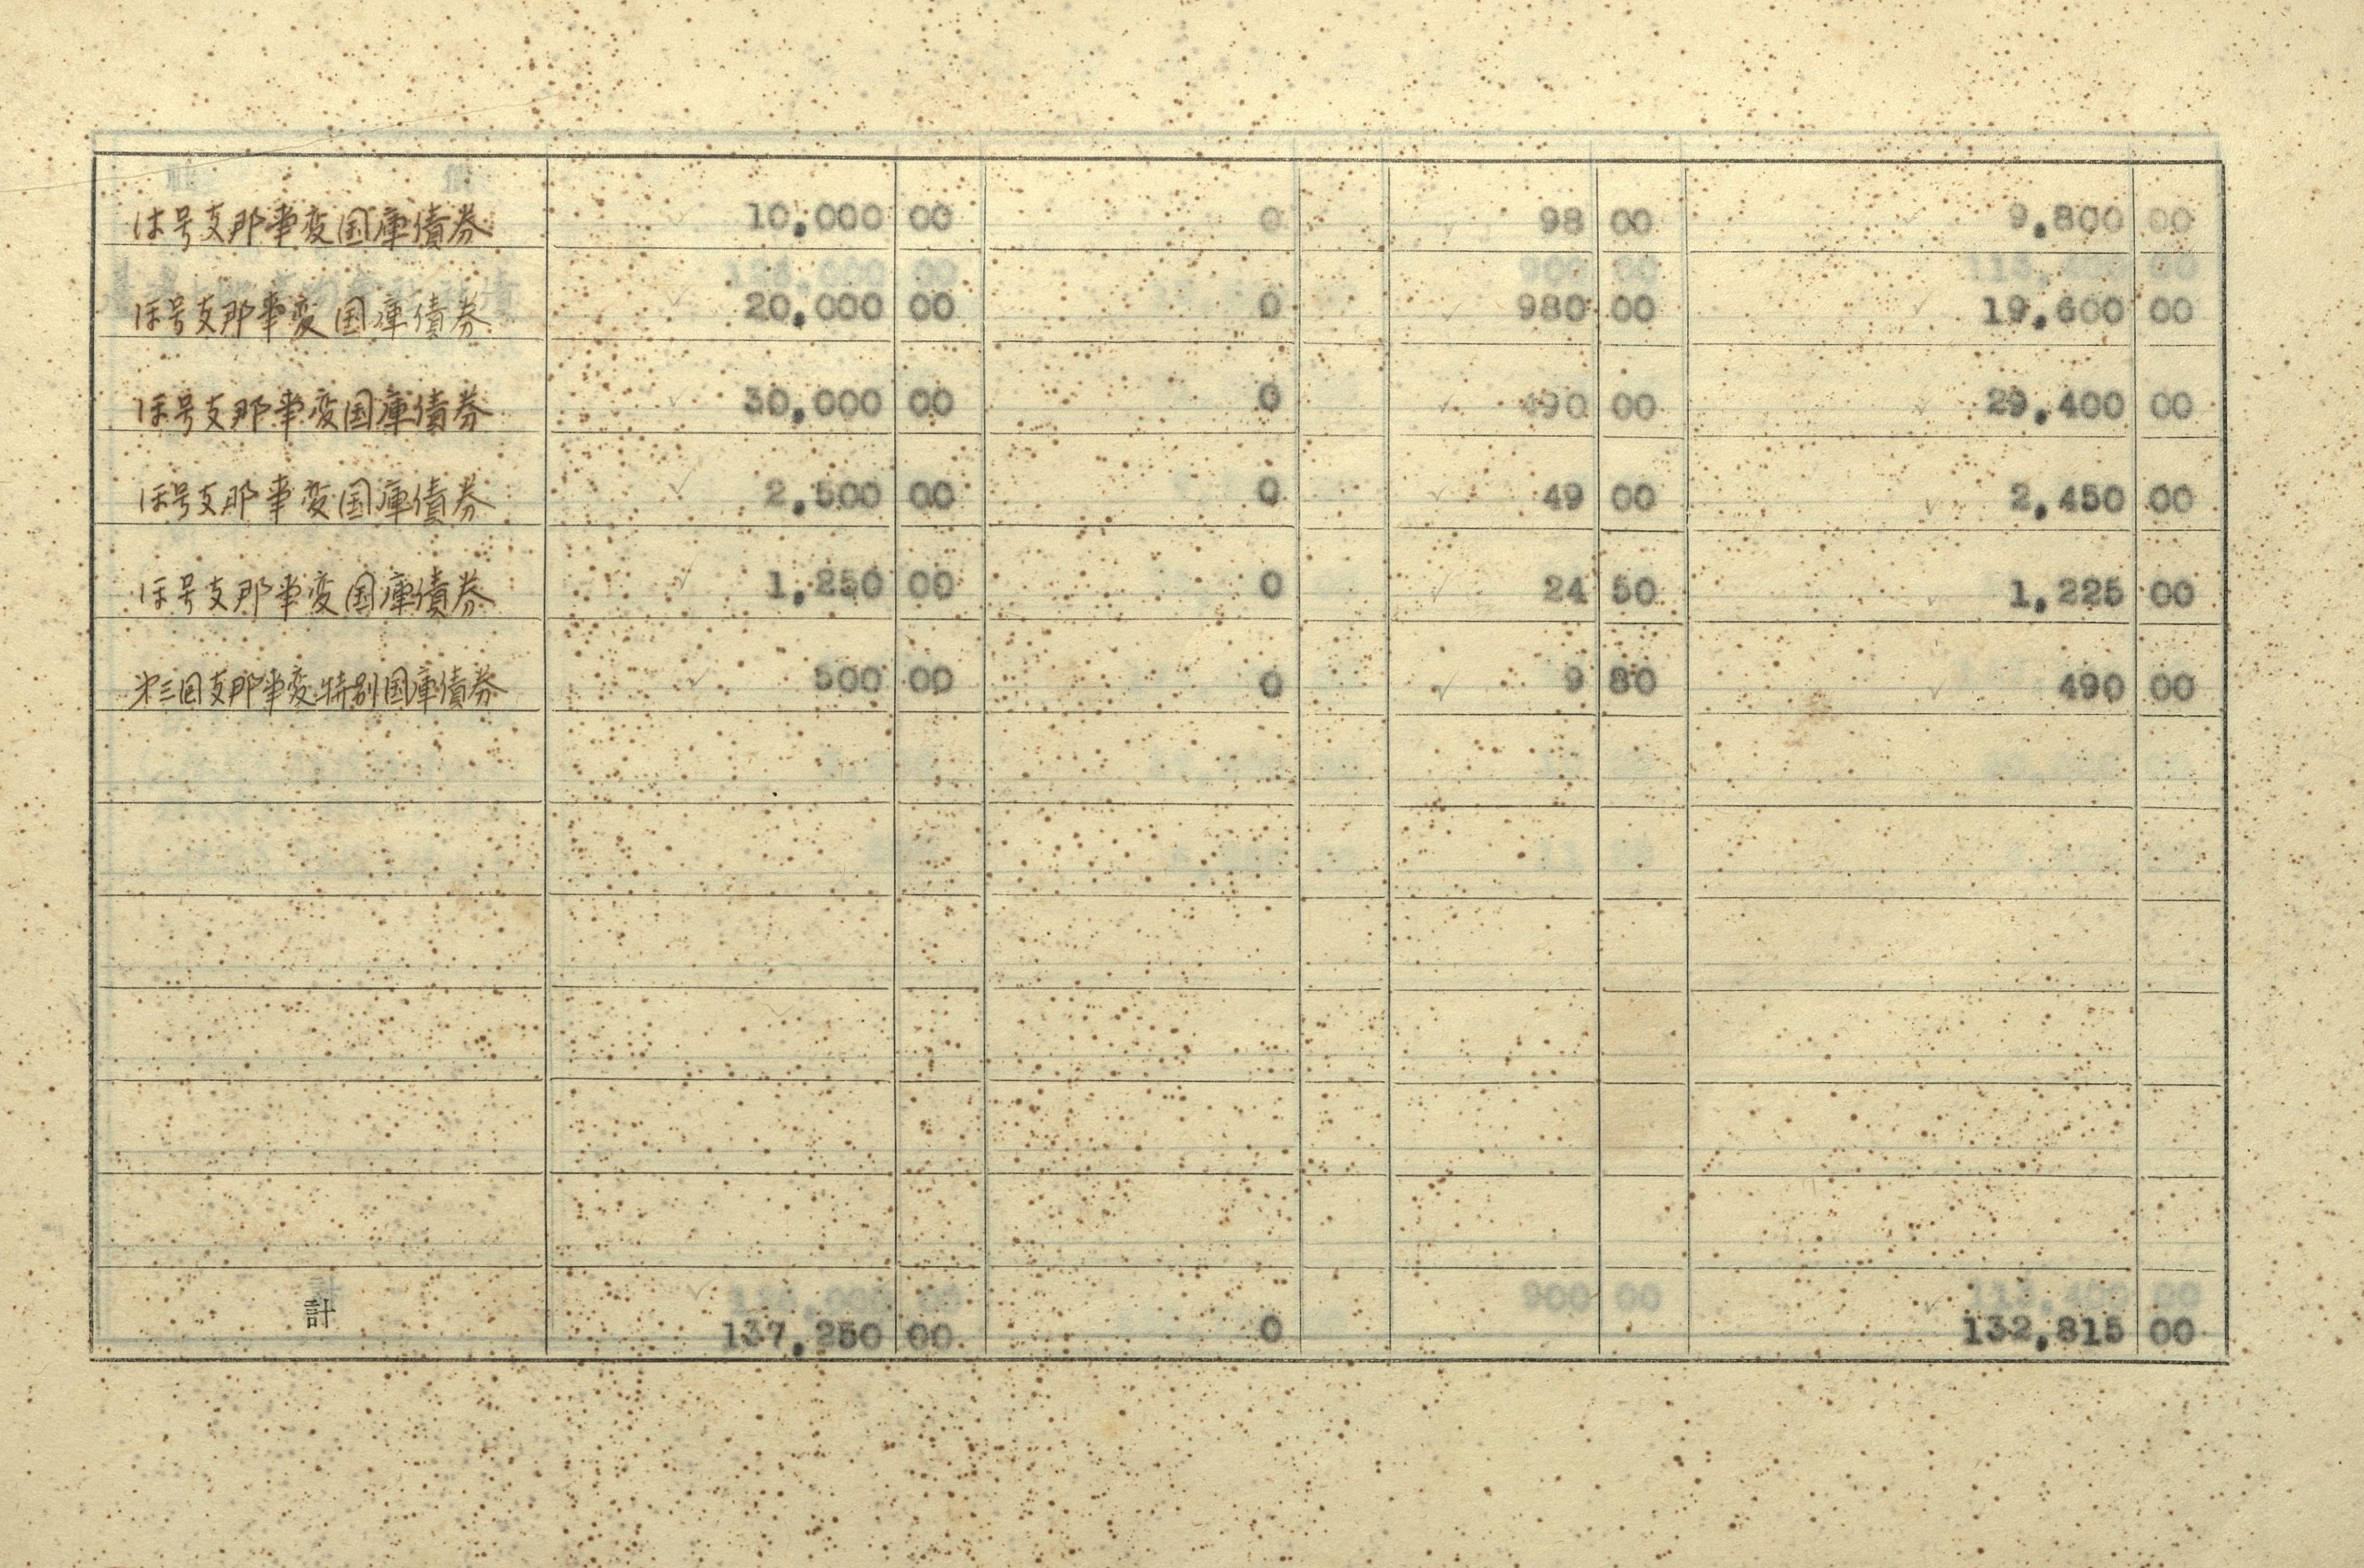 は号支那事変国庫債券 10,000 00 0 98 00 9,800 00
ほ号支那事変国庫債券 20,000 00 0 980 00 19,600 00
ほ号支那事変国庫債券 30,000 00 0 490 00 29,400 00
ほ号支那事変国庫債券 2,500 00 0 49 00 2,450 00
ほ号支那事変国庫債券 1,250 00 0 24 50 1,225 00
第三回支那事変特別国庫債券 500 00 0 9 80 490 00
計 137,250 00 0 132,815 00